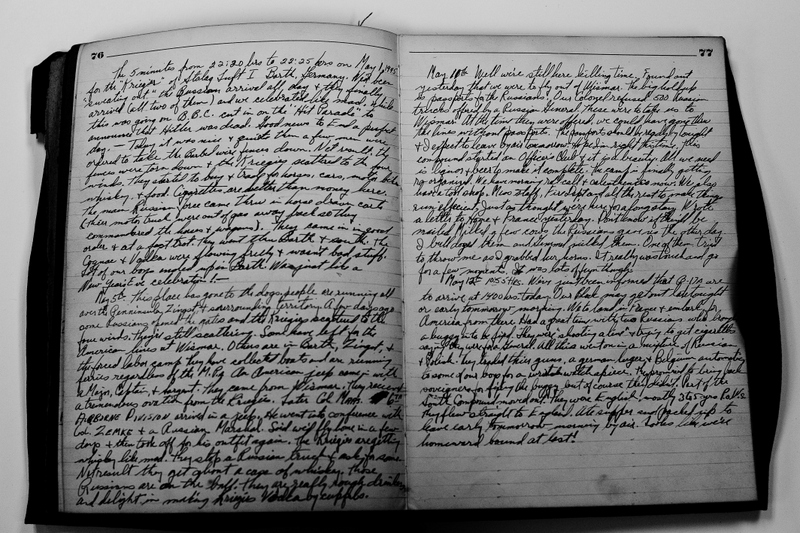 76
The 5 minutes from 22:20 hrs to 22:25 hrs on May 1, 1945
for the "Kriegies" of Stalag Luft I Barth, Germany. We'd been
"sweating out" the Russians arrival all day & they finally
arrived (all two of them) and we celebrated like mad. While
this was going on B.B.C. cut in on the "Hit Parade" to
announce that Hitler was dead. Good news to End a perfect
day. — Today it was nice & quiet then a few were
ordered to take the Barbed wire fences down. Net result the
fences were torn down & the Kriegies scattered to the four
winds. They started to buy & trade for horses, cars, motor bikes
whisky, & food. Cigarettes are better than money here.
The main Russian force came thru in horse drawn carts
(their motor trucks were out of gas away back so they
commandered the horses & wagons). They came in good
order & at a fast trot. They went thru Barth & on thru. The
Cognac & Vodka were flowing freely & wasn't bad stuff.
Lot of our boys ended up in Barth. Was just like a
New Years eve celebration!—
May 5th This place has gone to the dogs, people are running all
over the Penninsula, Zingst, & surrounding territory. A few days ago
some Russians opened the gates and the Kriegies scattered to the
four winds. They're still scattering. Some have left for the
American lines at Wismar. Others are in Barth, Zingst, &
the forced labor camps. They have collected boats and are running
ferries regardless of the M.P.s. An American jeep came in with
a Major, Captain, & sergeant. They came from Wismar. They received
a tremendous ovation from the Kriegies. Later Col. 6th
AIRBORNE DIVISION arrived in a jeep. He went into conference with
Col. ZEMKE & a Russian Marshal. Said we'll fly home in a few
days & then took off for his outfit again. The Kriegies are getting
whisky like mad. They stop a Russian truck & ask for some.
Net result they get about a case of whisky. These
Russians are on the "ball". They are really rough drinkers
and delight in making Kriegies Vodka by cupfuls.
77
May 10th Well we're still here killing time. Found out
yesterday that we were to fly out of Wismar. The big holdup
is passports to the Russians! Our Colonel refused 500 Russian
trucks offered by a Russian General. These were to take us to
Wismar. At the time they were offered, we could have gone thru
the lines without passports. The passports should be ready tonight
& I expect to leave by air tomorrow or the day right after. This
compound started an Officers Club & it is a beauty. All we need
is liquor & beer to make it complete. The camp is finally getting
re organized. We have morning roll call & calisthenics now. We also
have a tool shop. Mess staff, & and all the rest to make things
run efficient. Just as though we were here for a long stay. Wrote
a letter to Hope & France yesterday. Don't know if they'll be
mailed. Milked a few cows the Russians gave us the other day.
I bulldozed them and Seymour milked them. One of them tried
to throw me as I grabbed her horns. It really was touch and go
for a few moments. It was lots of fun though.
May 12th 1055 Hrs. We've just been informed that B-17s are
to arrive at 1400 hrs today. Our block may get out late tonight
or early tommorrow morning. We to land in France & embark for
America from there. Had a great time with two Russians who drove
a buggy in to be fixed. They were shooting a line & trying to get cigarettes
saying they were for a General. All this went on in a mixture of Russian
& Polish. They traded their guns, a german luger & Belgium automatic
to some of our boys for a wrist watch apiece. They promised to bring back
sovieniers for fixing the buggy but of course they didn't. Part of the
South Compound moved out. They were English mostly 3 & 5 year P.O.W.s
They flew straight to England. Ate supper and packed up to
leave early tommorrow morning by air. Looks like we're
homeward bound at last!